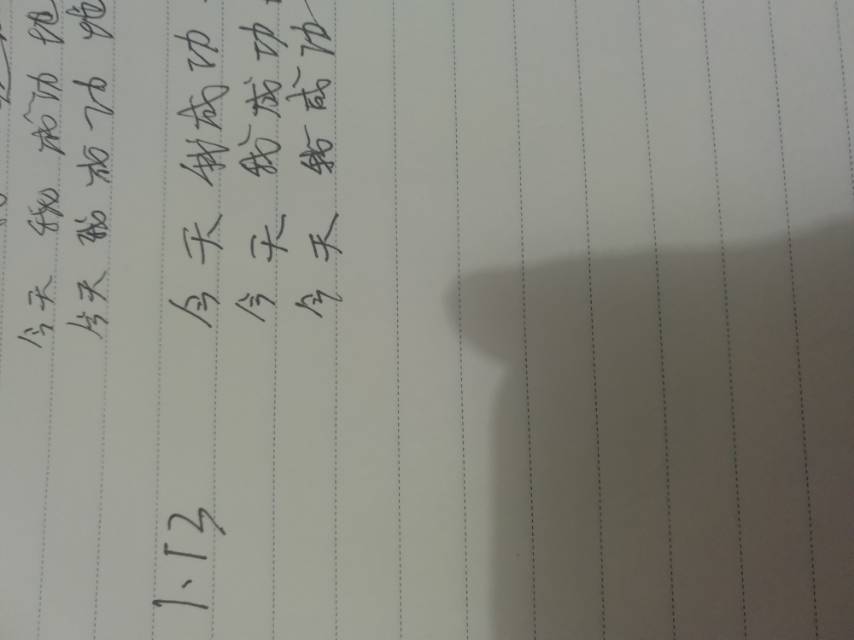 今天我成功地
今天我成功地
1、13 今天我成功
今天我成功
今天我成功